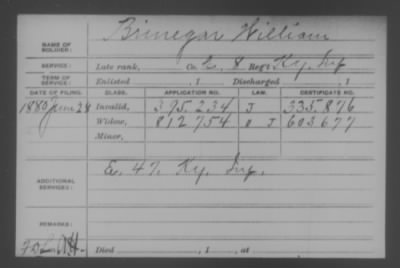 NAME OF SOLDIER: Brinegar William
SERVICE: Late rank, Co. E, 8 Reg't Ky. Inf
TERM OF SERVICE: Enlisted , 1 Discharged , 1
DATE OF FILING. CLASS. APPLICATION NO. LAW. CERTIFICATE NO.
1880 June 24 Invalid, 395.234 J 335.876
Widow, 812754 O J 603677
Minor,
ADDITIONAL SERVICES: E. 47. Ky. Inf.
REMARKS:
Died , 1 , at